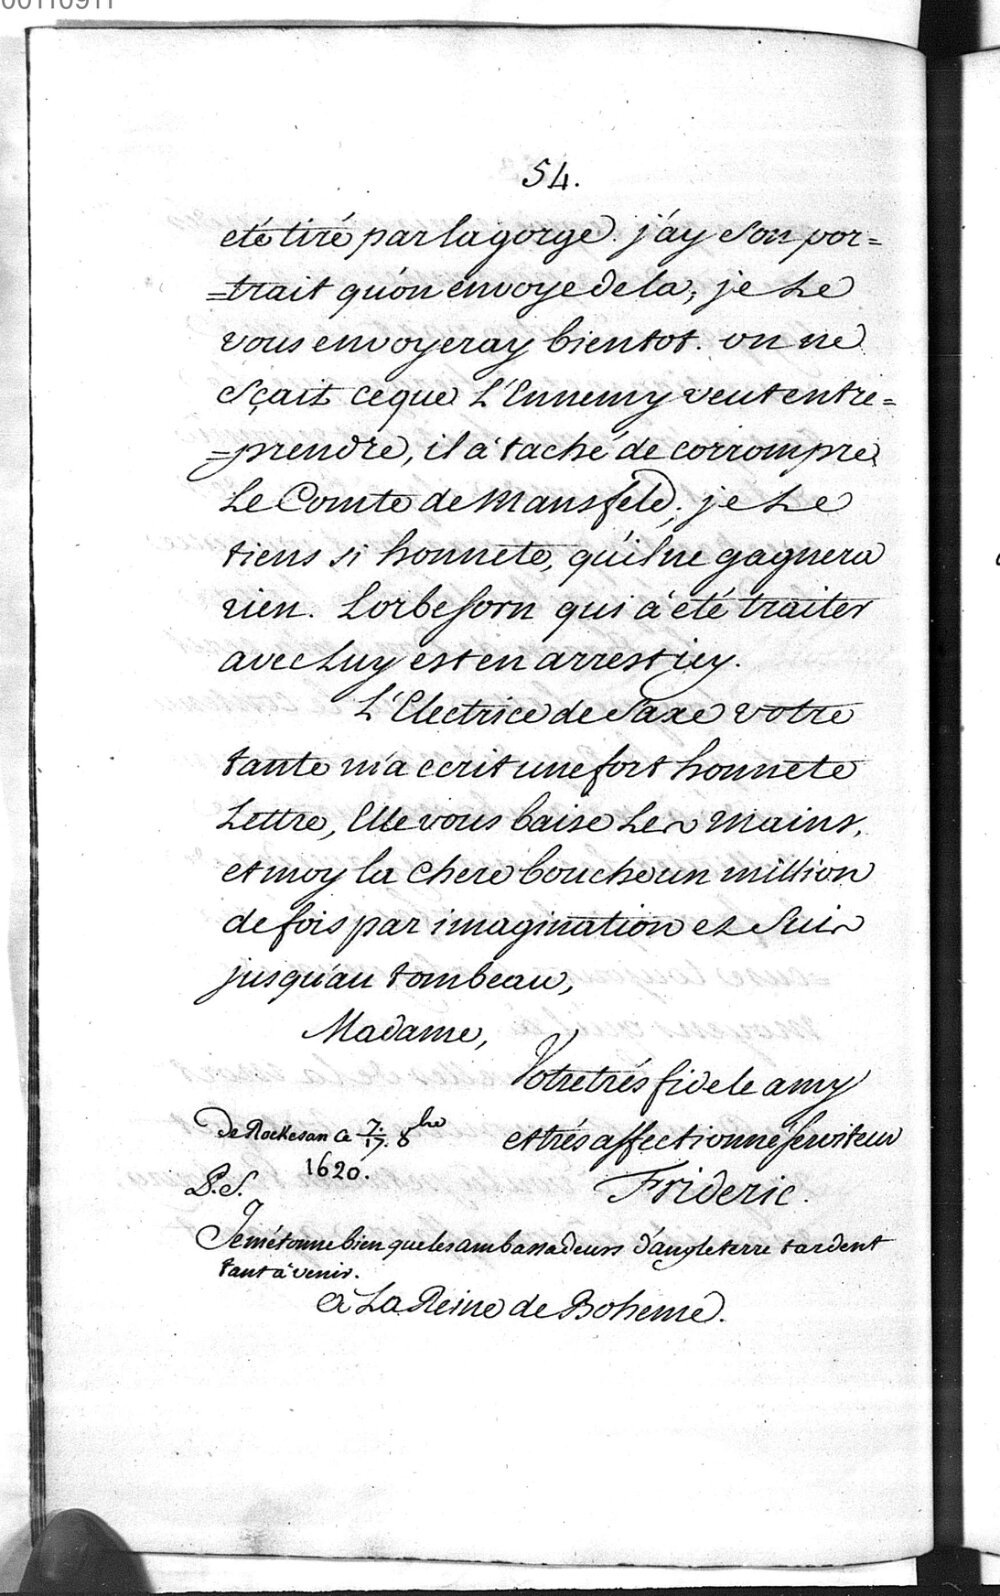 54.
eté tiré par la gorge. j'ay son por=
=trait qu'on envoye de la, je Le
vous envoyeray bientot. on ne
sçait ce que L'Ennemy veut entre=
=prendre, il à taché de corrompre
Le Comte de Mansfeld, je Le
tiens si honnete, qu'il ne gagnera
rien. Lorbesorn qui à été traiter
avec Luy est en arrest icy.
L'Electrice de Saxe votre
tante m'a ecrit une fort honnete
Lettre, Elle vous baise Les mains,
et moy la chere bouche un million
de fois par imagination et suis
jusqu'au tombeau,
Madame,
Votre trés fidele amy
et trés affectionné serviteur
De Rockesan ce 7./17. 8bre
1620.
Frideric.
P.S.
Je m'étonne bien que les ambassadeurs d'angleterre tardent
tant à venir.
à La Reine de Boheme.